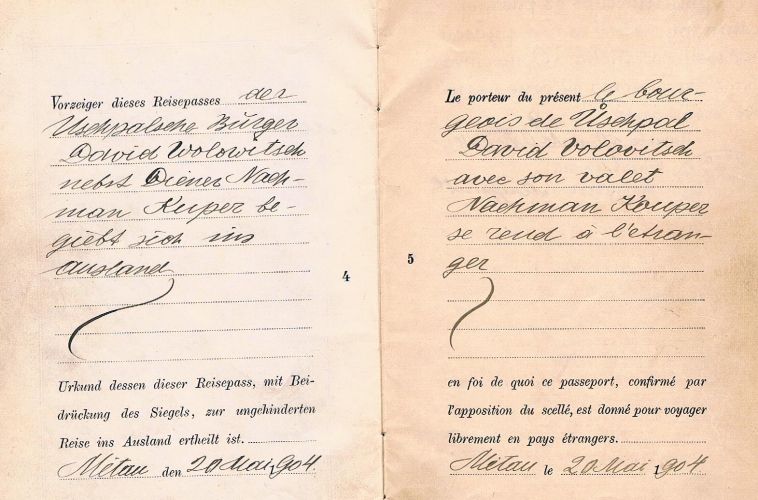 Vorzeiger dieses Reisepasses der
Uschpalsche Bürger
David Wolowitsch
nebst Diener Nach-
man Kuper be-
giebt sich ins
Ausland
4
Urkund dessen dieser Reisepass, mit Bei-
drückung des Siegels, zur ungehinderten
Reise ins Ausland ertheilt ist.
Mitau den 20 Mai 1904.
Le porteur du présent le bour-
geois de Uschpol
David Volovitsch
avec son valet
Nachman Kouper
se rend à l'étran-
ger
5
en foi de quoi ce passeport, confirmé par
l'apposition du scellé, est donné pour voyager
librement en pays étrangers.
Mitau le 20 Mai 1904